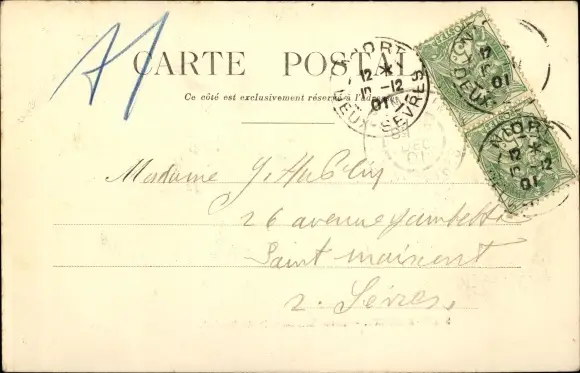 CARTE POSTALE
Ce côté est exclusivement réservé à l'adresse
NIORT
12 *
15 -12
01
DEUX-SÈVRES
NIORT
12 *
15 -12
01
DEC
01
Madame J.
26 avenue Gambetta
Saint Maixent
2. Sèvres